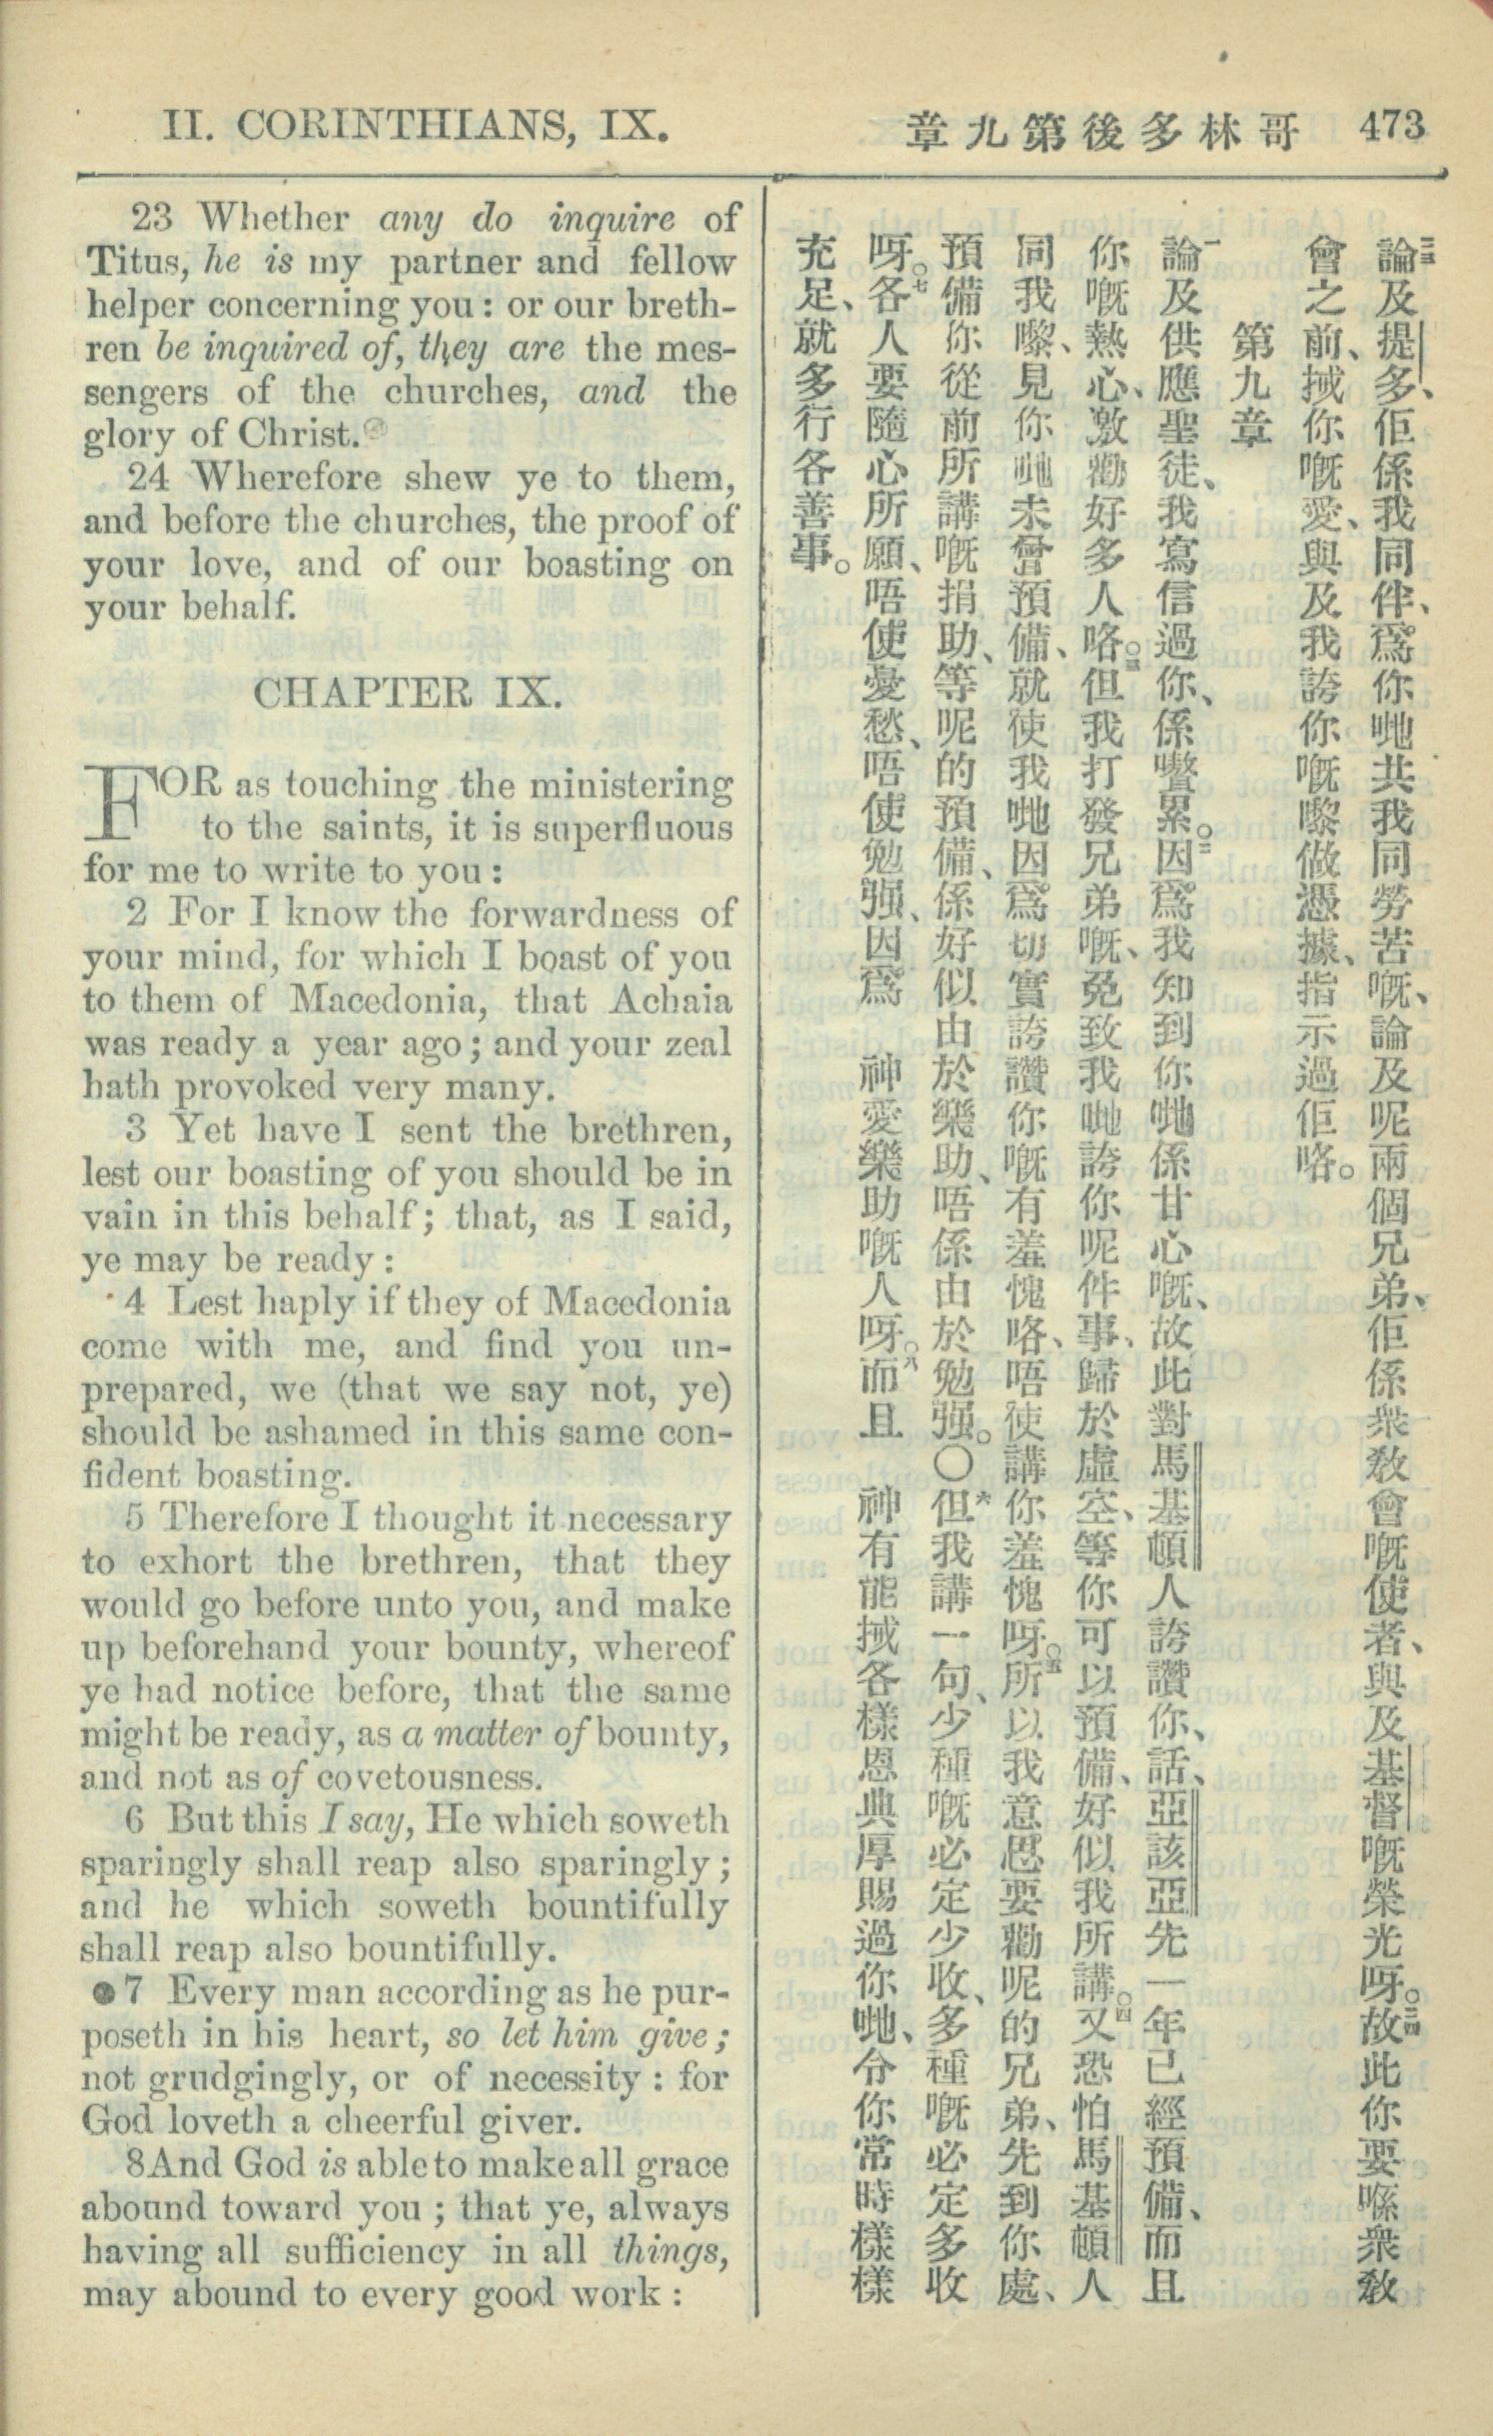 II. CORINTHIANS, IX.
章九第後多林哥 473
23 Whether any do inquire of
Titus, he is my partner and fellow
helper concerning you : or our breth-
ren be inquired of, they are the mes-
sengers of the churches, and the
glory of Christ.
24 Wherefore shew ye to them,
and before the churches, the proof of
your love, and of our boasting on
your behalf.
CHAPTER IX.
FOR as touching the ministering
to the saints, it is superfluous
for me to write to you :
2 For I know the forwardness of
your mind, for which I boast of you
to them of Macedonia, that Achaia
was ready a year ago ; and your zeal
hath provoked very many.
3 Yet have I sent the brethren,
lest our boasting of you should be in
vain in this behalf ; that, as I said,
ye may be ready :
4 Lest haply if they of Macedonia
come with me, and find you un-
prepared, we (that we say not, ye)
should be ashamed in this same con-
fident boasting.
5 Therefore I thought it necessary
to exhort the brethren, that they
would go before unto you, and make
up beforehand your bounty, whereof
ye had notice before, that the same
might be ready, as a matter of bounty,
and not as of covetousness.
6 But this I say, He which soweth
sparingly shall reap also sparingly ;
and he which soweth bountifully
shall reap also bountifully.
7 Every man according as he pur-
poseth in his heart, so let him give ;
not grudgingly, or of necessity : for
God loveth a cheerful giver.
8 And God is able to make all grace
abound toward you ; that ye, always
having all sufficiency in all things,
may abound to every good work :
二三論及提多、佢係我同伴、爲你哋共我同勞苦嘅、論及呢兩個兄弟、佢係衆教會嘅使者、與及基督嘅榮光呀。○二四故此你要喺衆教
會之前、掝你嘅愛、與及我誇你嘅嚟做憑據、指示過佢咯。
第九章
一論及供應聖徒、我寫信過你、係嚽累。○二因爲我知到你哋係甘心嘅、故此對馬基頓人誇讚你、話、亞該亞先一年已經預備、而且
你嘅熱心、激勸好多人咯。○三但我打發兄弟嘅、免致我哋誇你呢件事、歸於虛空、等你可以預備、好似我所講。○四又恐怕馬基頓人
同我嚟、見你哋未曾預備、就使我哋因爲切實誇讚你嘅有羞愧咯、唔使講你羞愧呀。○五所以我意思要勸呢的兄弟、先到你處、
預備你從前所講嘅捐助、等呢的預備、係好似由於樂助、唔係由於勉强。○六但我講一句、少種嘅必定少收、多種嘅必定多收
呀。○七各人要隨心所願、唔使憂愁、唔使勉强、因爲 神愛樂助嘅人呀。○八而且 神有能掝各樣恩典厚賜過你哋、令你常時樣樣
充足、就多行各善事。